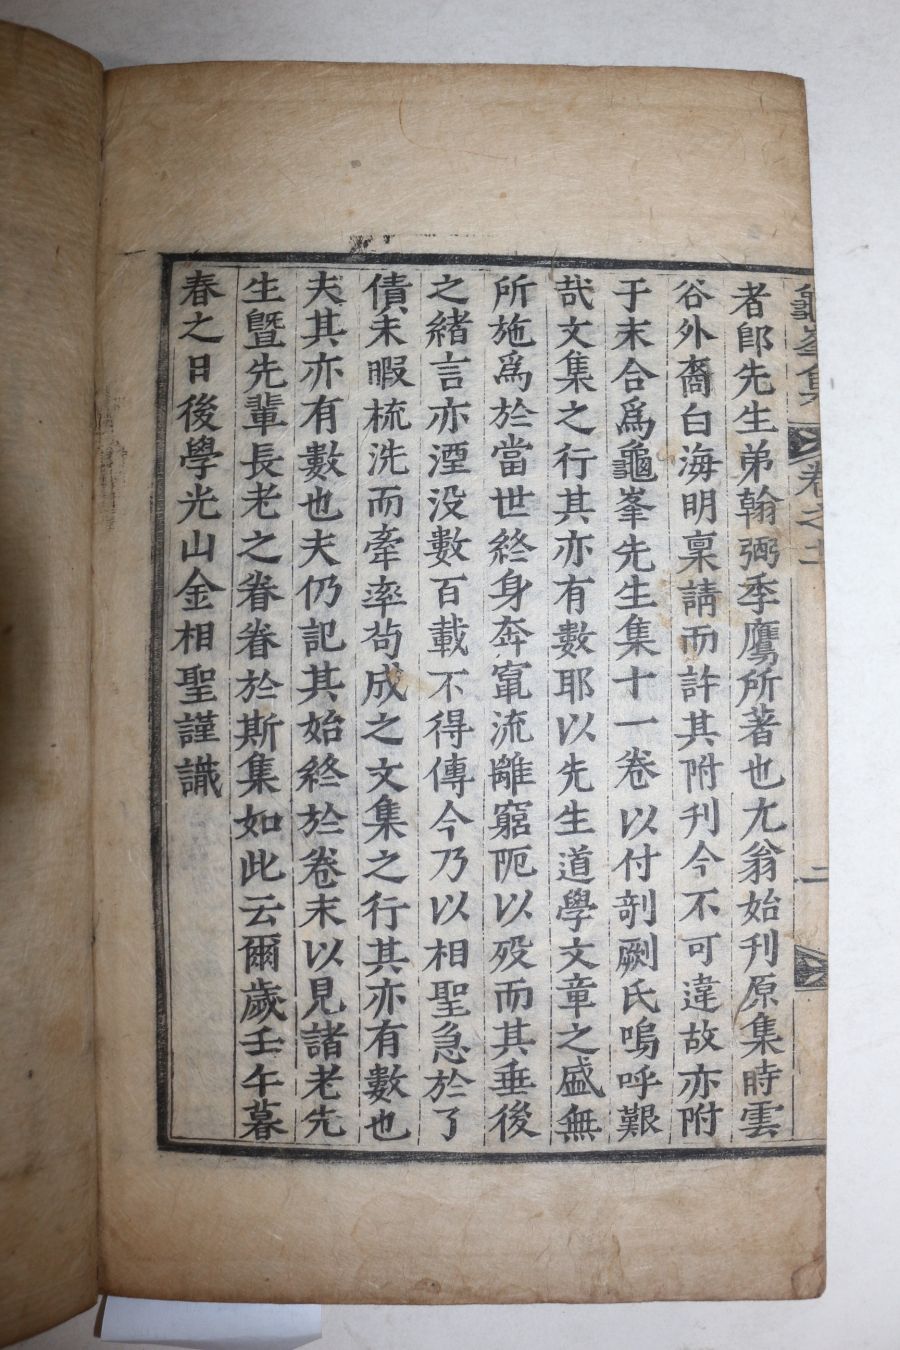 龜峯集 卷之十 二
者郎先生弟翰弼季鷹所著也尤翁始刊原集時雲
谷外裔白海明稟請而許其附刊今不可違故亦附
于末合爲龜峯先生集十一卷以付剞劂氏嗚呼艱
哉文集之行其亦有數耶以先生道學文章之盛無
所施爲於當世終身奔竄流離窮阨以歿而其垂後
之緖言亦湮没數百載不得傳今乃以相聖急於了
債未暇梳洗而牽率苟成之文集之行其亦有數也
夫其亦有數也夫仍記其始終於卷末以見諸老先
生曁先輩長老之眷眷於斯集如此云爾歲壬午暮
春之日後學光山金相聖謹識